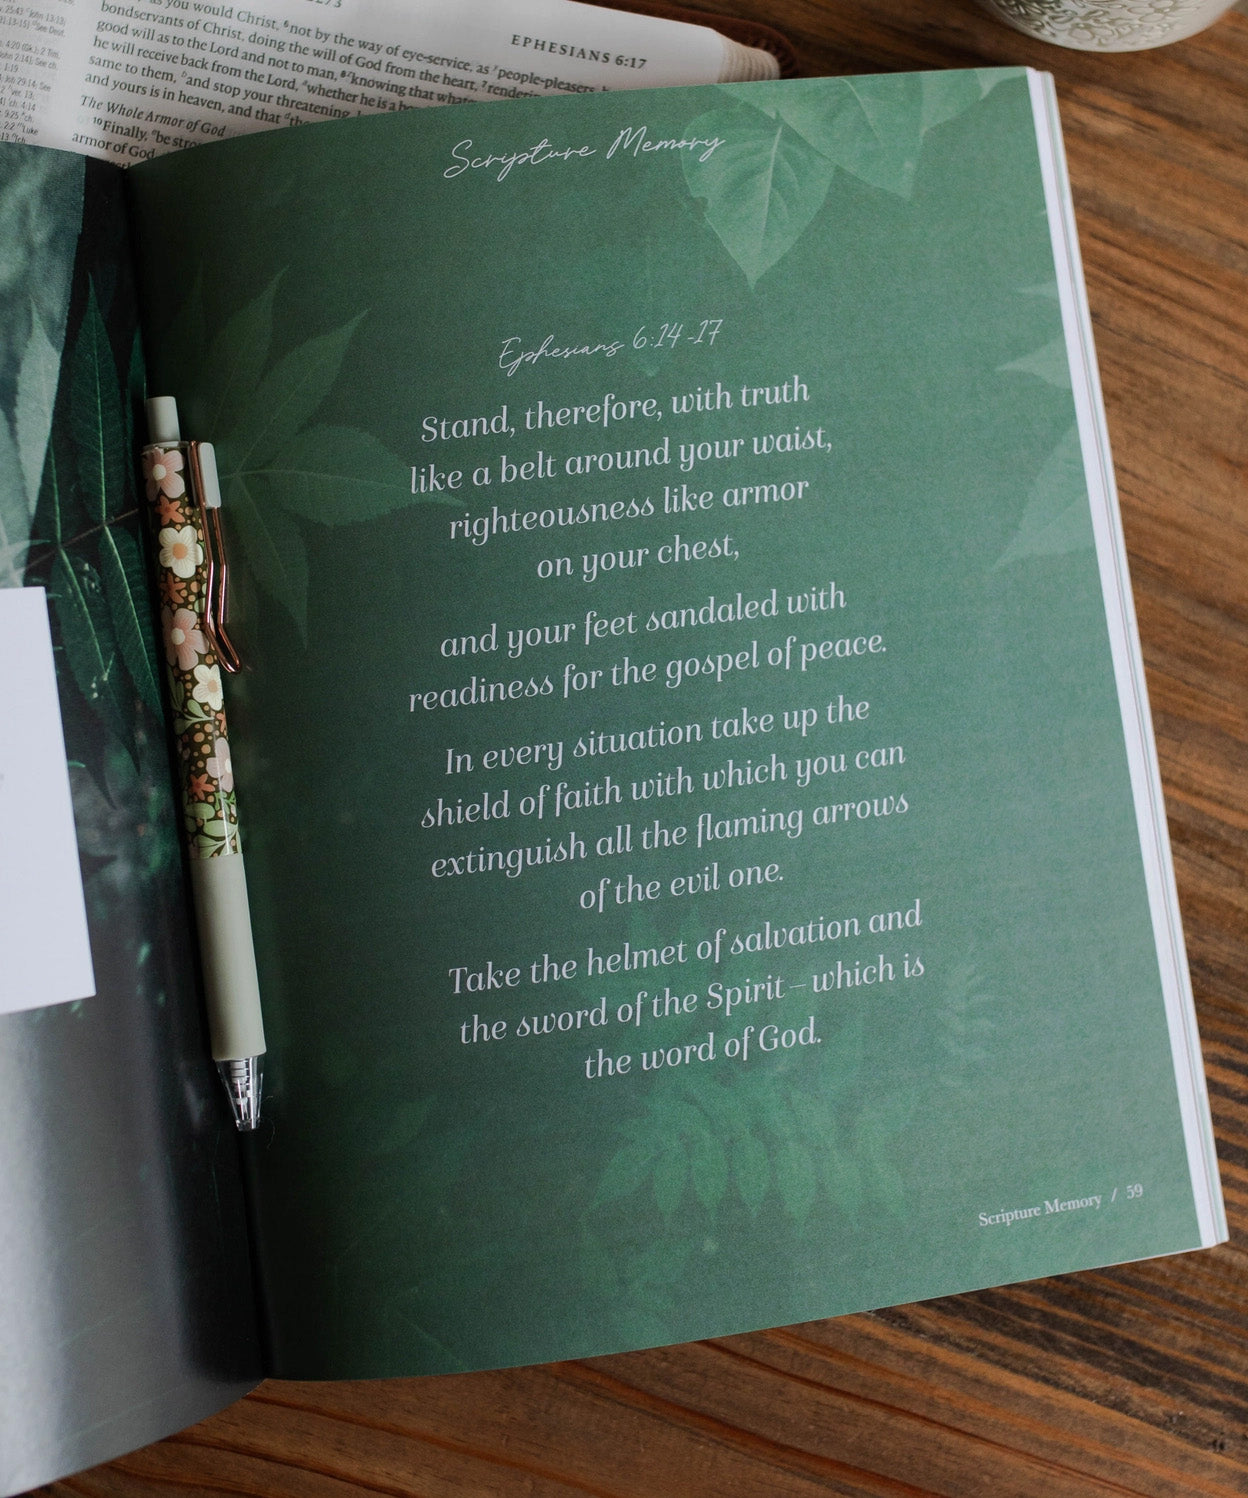 you would Christ, ⁶not by the way of eye-service, as ᶻpeople-pleasers,
bondservants of Christ, doing the will of God from the heart, ⁷rendering
good will as to the Lord and not to man, ⁸knowing that
he will receive back from the Lord, whether he is a
same to them, ᵇand stop your threatening,
and yours is in heaven, and that
The Whole Armor of God
¹⁰Finally, be
armor of God
EPHESIANS 6:17
Scripture Memory
Ephesians 6:14-17
Stand, therefore, with truth
like a belt around your waist,
righteousness like armor
on your chest,
and your feet sandaled with
readiness for the gospel of peace.
In every situation take up the
shield of faith with which you can
extinguish all the flaming arrows
of the evil one.
Take the helmet of salvation and
the sword of the Spirit—which is
the word of God.
Scripture Memory / 59